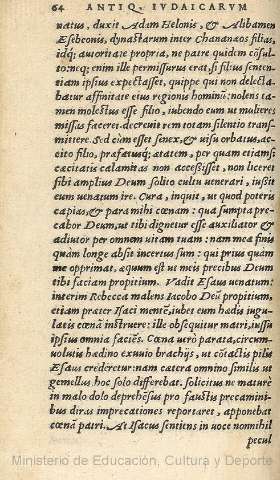 64 ANTIQ. IVDAICARVM
natus, duxit Adam Helonis, & Alibamen
Esebeonis, dynastarum inter Chananæos filias,
idq; autoritate propria, ne patre quidem cōsul-
to: neq; enim ille permissurus erat, si filius senten-
tiam ipsius expectasset, quippe qui non delecta-
batur affinitate eius regionis hominū: nolens ta-
men molestus esse filio, iubendo eum ut mulieres
missas faceret, decreuit rem totam silentio trans-
mittere. Sed cùm esset senex, & uisu orbatus, ac-
cito filio, præfatusq; ætatem, per quam etiamsi
cæcitatis calamitas non accessisset, non liceret
sibi amplius Deum solito cultu uenerari, iussit
eum uenatum ire. Cura, inquit, ut quod poteris
capias, & para mihi cœnam: qua sumpta pre-
cabor Deum, ut tibi dignetur esse auxiliator &
adiutor per omnem uitam tuam: nam mea finis
quàm longe absit incertus sum: qui prius quàm
me opprimat, æquum est ut meis precibus Deum
tibi faciam propitium. Vadit Esaus uenatum:
interim Rebecca malens Iacobo Deū propitium,
etiam præter Isaci mentē, iubet eum hædis iugu-
latis cœnā instruere: ille obsequitur matri, iussu
ipsius omnia faciēs. Cœna uerò parata, circum-
uolutis hædino exuuio brachijs, ut cōtactis pilis
Esaus crederetur: nam cætera omnino similis ut
gemellus hoc solo differebat. solicitus ne maturè
in malo dolo deprehēsus pro faustis precamini-
bus diras imprecationes reportaret, apponebat
cœnā patri. At Isacus sentiens in uoce nonnihil
pecul
Ministerio de Educación, Cultura y Deporte